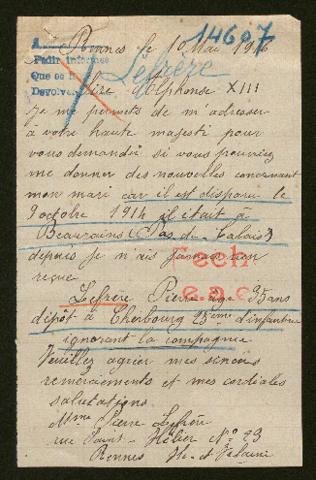 14607
Rennes le 10 Mai 1916
Pedir informes
Que se
Devolver
Lefrère
Sire Alphonse XIII
Je me permets de m'adresser
à votre haute majesti pour
vous demander si vous pouviez
me donner des nouvelles concernant
mon mari car il est disparu le
9 octobre 1914 il était à
Beaurains (Pas de Calais)
depuis je n'ais jamais rien
reçue
Fech
e.a.c.
Lefrère Pierre age 35 ans
dépôt à Cherbourg 25ième d'infantrie
ignorant la compagnie
Veuillez agrier mes sincères
remerciements et mes cordiales
salutations
Mme Pierre Lefrère
rue Saint-Hélier No 23
Rennes Ile et Vilaine